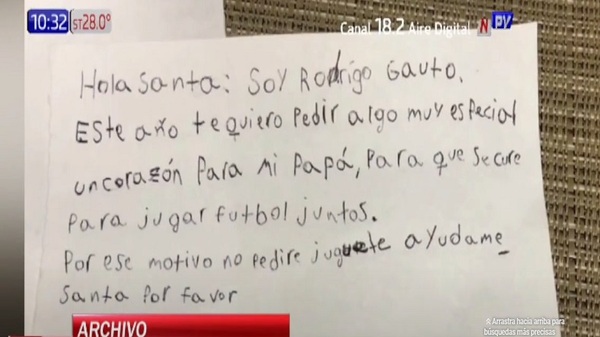 10:32 ST28.0°
Canal 18.2 Aire Digital N PY
Hola Santa: Soy Rodrigo Gauto.
Este año te quiero pedir algo muy especial
un corazón para mi papá, para que se cure
para jugar futbol juntos.
Por ese motivo no pedire juguete ayudame
Santa por favor
ARCHIVO
Arrastra hacia arriba para
búsquedas más precisas